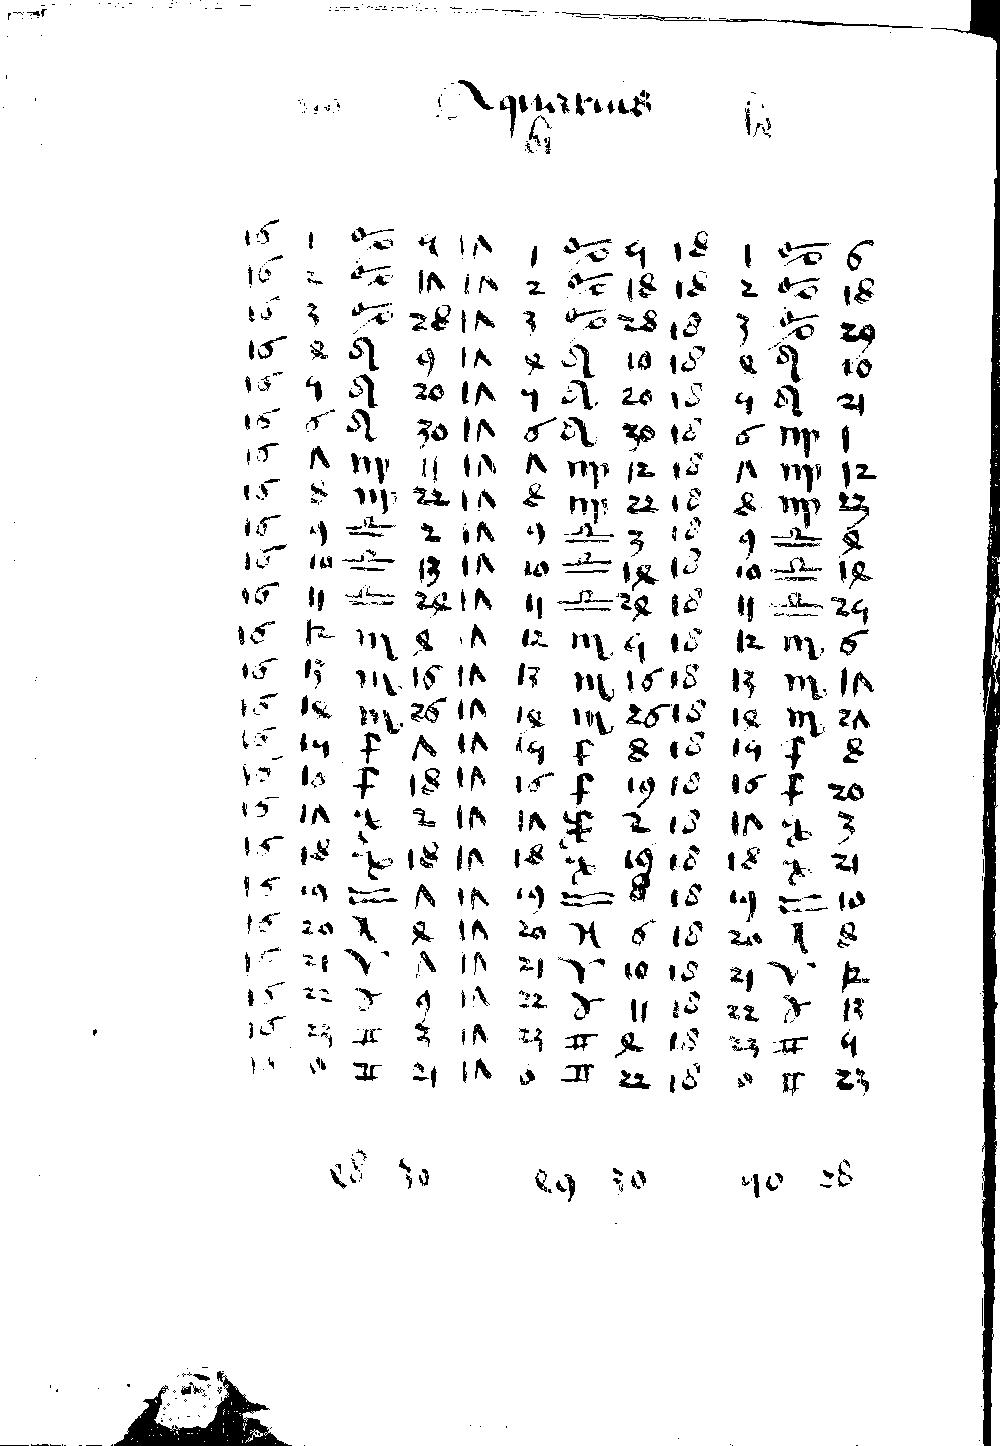 Aquarius
16 1 ♋ 5 17 1 ♋ 5 18 1 ♋ 6
16 2 ♋ 17 17 2 ♋ 18 18 2 ♋ 18
16 3 ♋ 28 17 3 ♋ 28 18 3 ♋ 29
16 4 ♌ 9 17 4 ♌ 10 18 4 ♌ 10
16 5 ♌ 20 17 5 ♌ 20 18 5 ♌ 21
16 6 ♌ 30 17 6 ♌ 30 18 6 ♍ 1
16 7 ♍ 11 17 7 ♍ 12 18 7 ♍ 12
16 8 ♍ 22 17 8 ♍ 22 18 8 ♍ 23
16 9 ♎ 2 17 9 ♎ 3 18 9 ♎ 4
16 10 ♎ 13 17 10 ♎ 14 18 10 ♎ 14
16 11 ♎ 24 17 11 ♎ 24 18 11 ♎ 25
16 12 ♏ 4 17 12 ♏ 5 18 12 ♏ 6
16 13 ♏ 16 17 13 ♏ 16 18 13 ♏ 17
16 14 ♏ 26 17 14 ♏ 26 18 14 ♏ 27
16 15 ♐ 7 17 15 ♐ 8 18 15 ♐ 8
16 16 ♐ 18 17 16 ♐ 19 18 16 ♐ 20
16 17 ♑ 2 17 17 ♑ 2 18 17 ♑ 3
16 18 ♑ 18 17 18 ♑ 19 18 18 ♑ 21
16 19 ♒ 7 17 19 ♒ 8 18 19 ♒ 10
16 20 ♓ 4 17 20 ♓ 6 18 20 ♓ 8
16 21 ♈ 7 17 21 ♈ 10 18 21 ♈ 12
16 22 ♉ 9 17 22 ♉ 11 18 22 ♉ 13
16 23 ♊ 3 17 23 ♊ 4 18 23 ♊ 5
16 0 ♊ 21 17 0 ♊ 22 18 0 ♊ 23
48 30 49 30 50 28